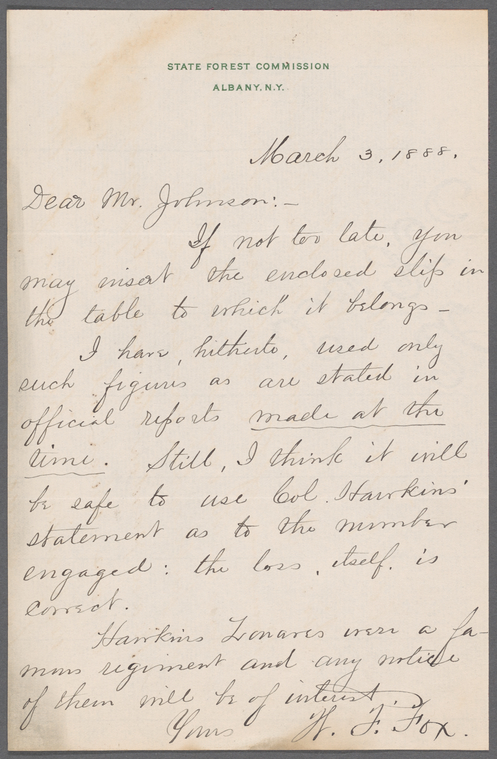 STATE FOREST COMMISSION
ALBANY. N.Y.
March 3, 1888.
Dear Mr. Johnson:—
If not too late, you
may insert the enclosed slip in
the table to which it belongs—
I have, hitherto, used only
such figures as are stated in
official reports made at the
time. Still, I think it will
be safe to use Col. Hawkins'
statement as to the number
engaged: the loss, itself, is
correct.
Hawkins Zouaves were a fa-
mous regiment and any notice
of them will be of interest.
Yours W. F. Fox.